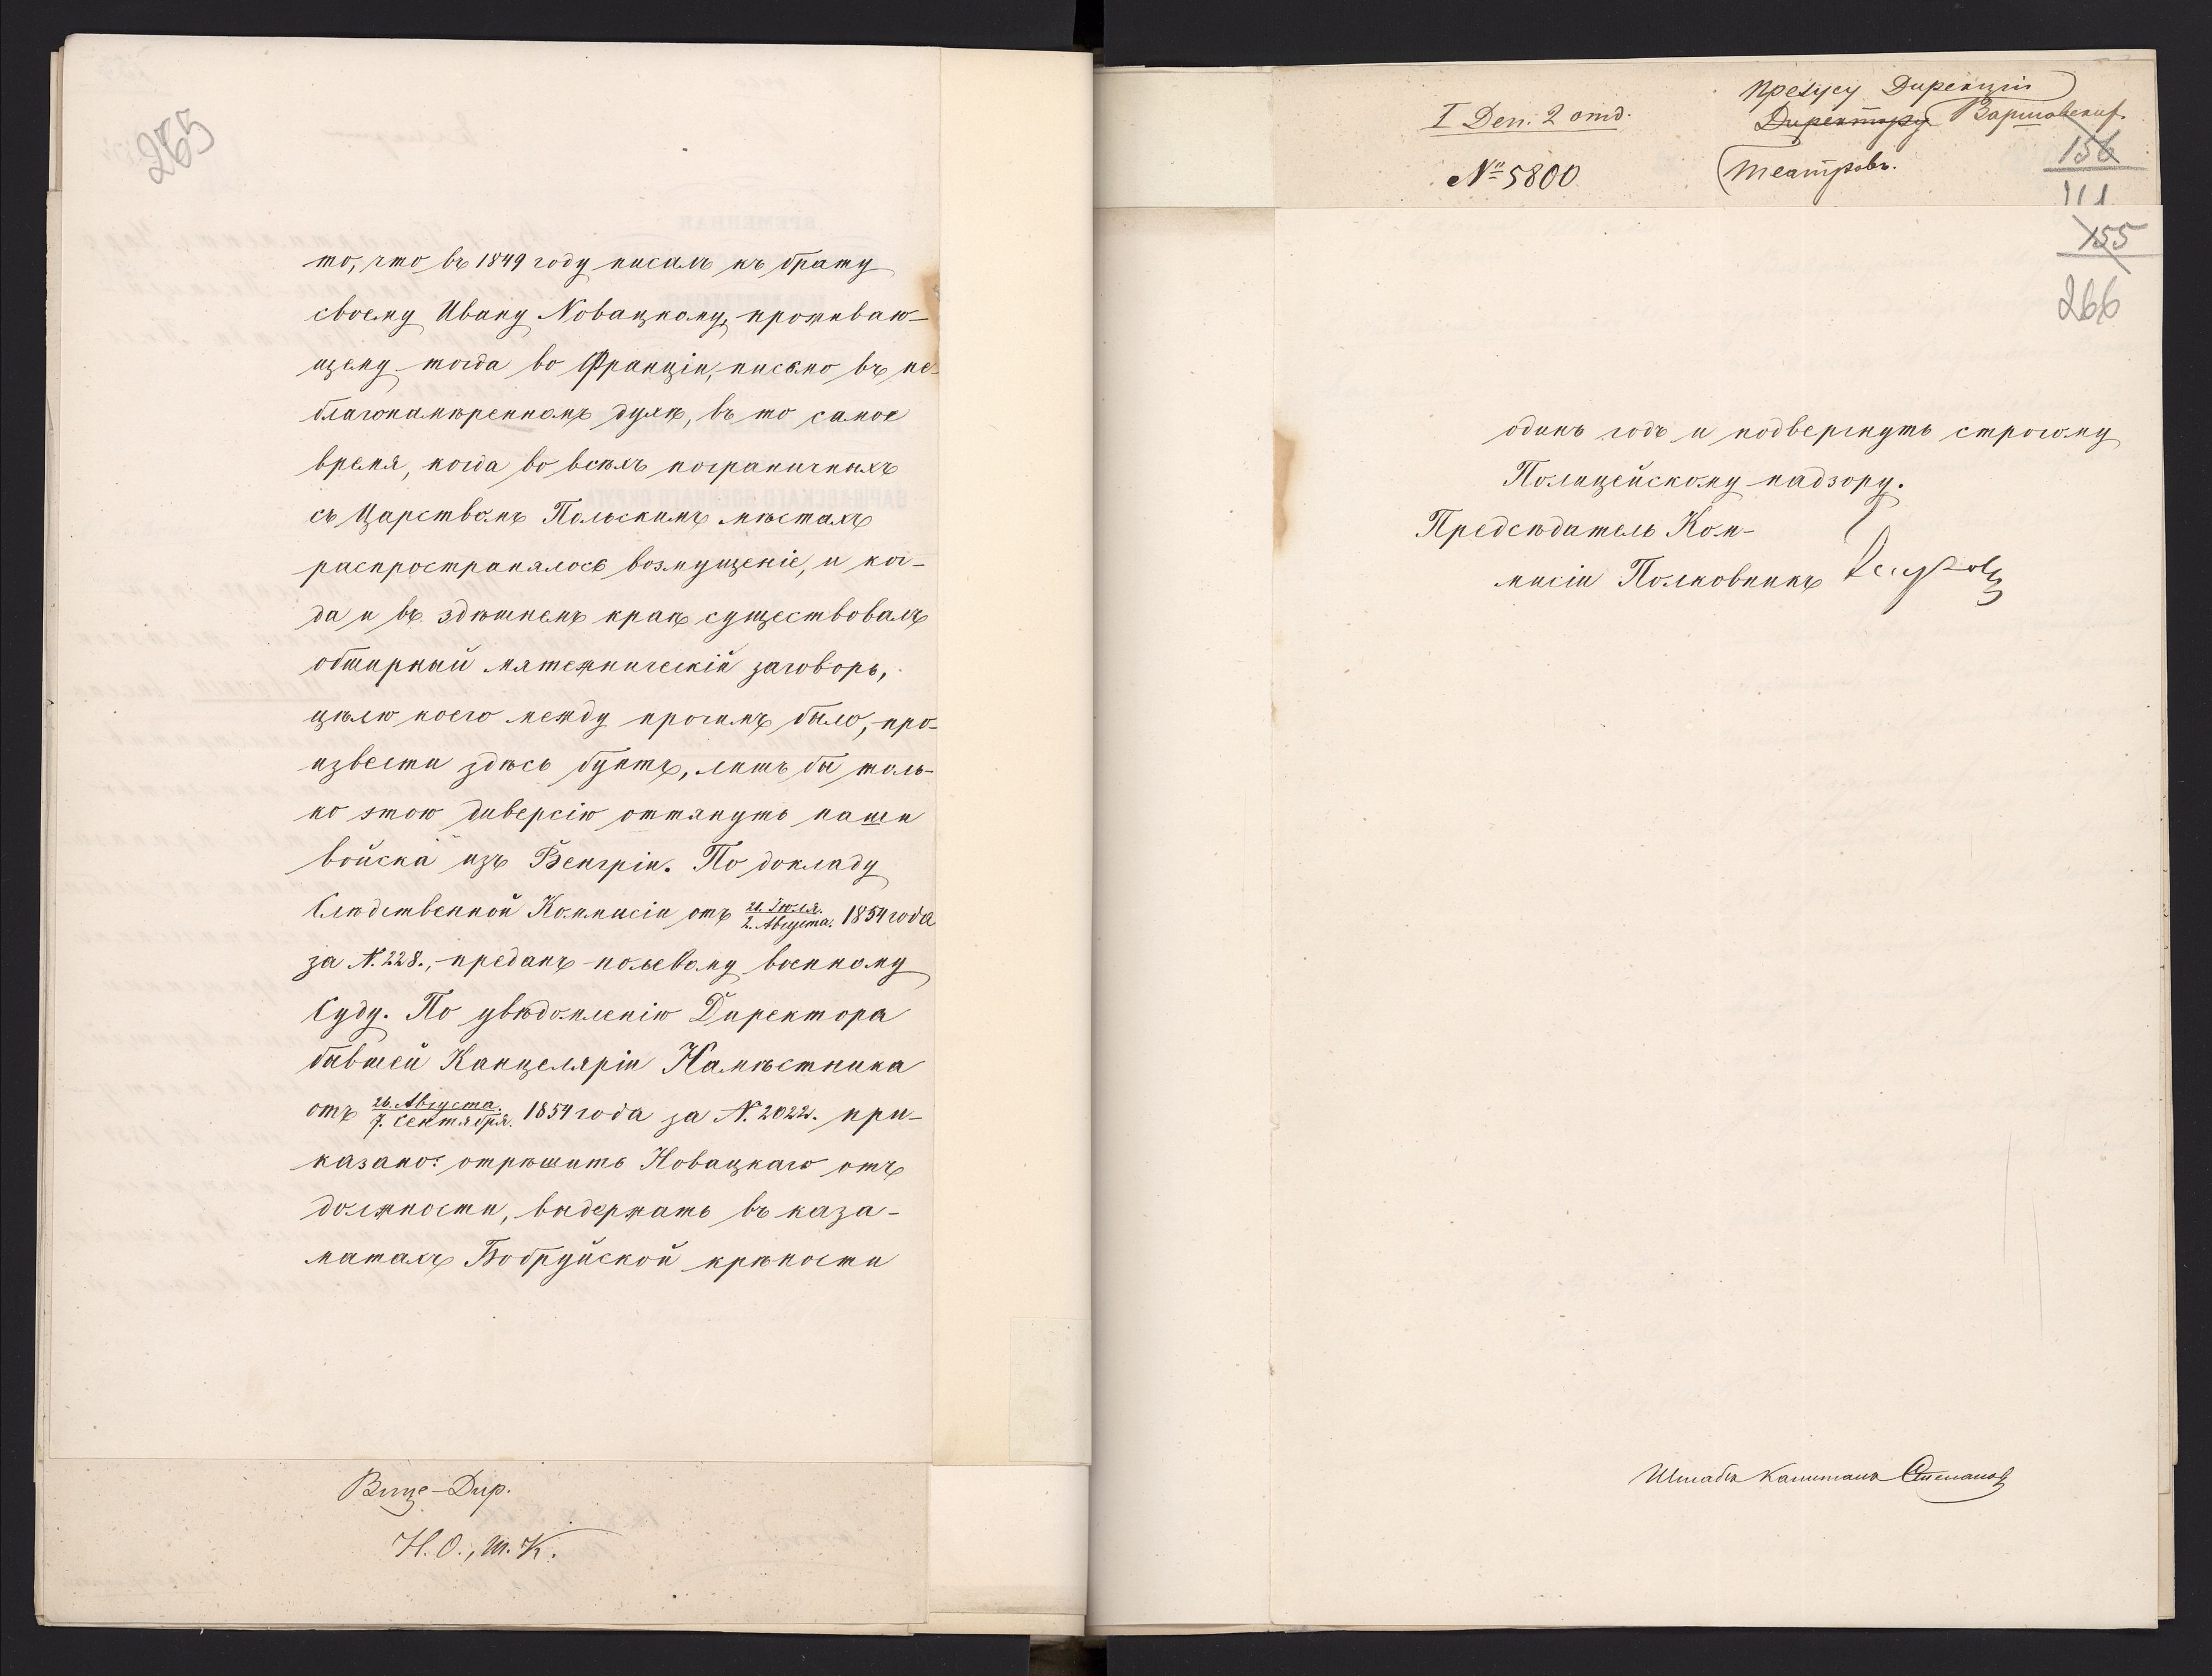 265
то, что въ 1849 году писалъ къ брату
своему Ивану Новацкому, проживаю-
щему тогда во Франціи, письмо въ не-
благонамѣренномъ духѣ, въ то самое
время, когда во всѣхъ пограничныхъ
съ Царствомъ Польскимъ мѣстахъ
распространялось возмущеніе, и ког-
да и въ здѣшнемъ краѣ существовалъ
обширный мятежническій заговоръ,
цѣлю коего между прочимъ было, про-
извести здѣсь бунтъ, лишь бы толь-
ко этою диверсію оттянуть наши
войска изъ Венгріи. По докладу
Слѣдственной Коммисіи отъ 21. Іюля./2. Августа. 1854 года
за N. 228., преданъ полевому военному
Суду. По увѣдомленію Директора
бывшей Канцеляріи Намѣстника
отъ 26. Августа./7. Сентября. 1854 года за N. 2022. при-
казано: отрѣшить Новацкаго отъ
должности, выдержать въ каза-
матахъ Бобруйской крѣпости
Вице-Дир.
Н. О., ш. К.
I Деп. 2 отд.
№ 5800
Презусу Дирекціи
Директору Варшавскихъ
театровъ.
156
111
155
266
одинъ годъ и подвергнуть строгому
Полицейскому надзору.
Предсѣдатель Ком-
мисіи Полковникъ
Штабсъ Капитанъ Степановъ